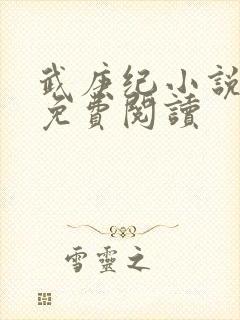 武庚纪小說
免費閱讀
雪靈之